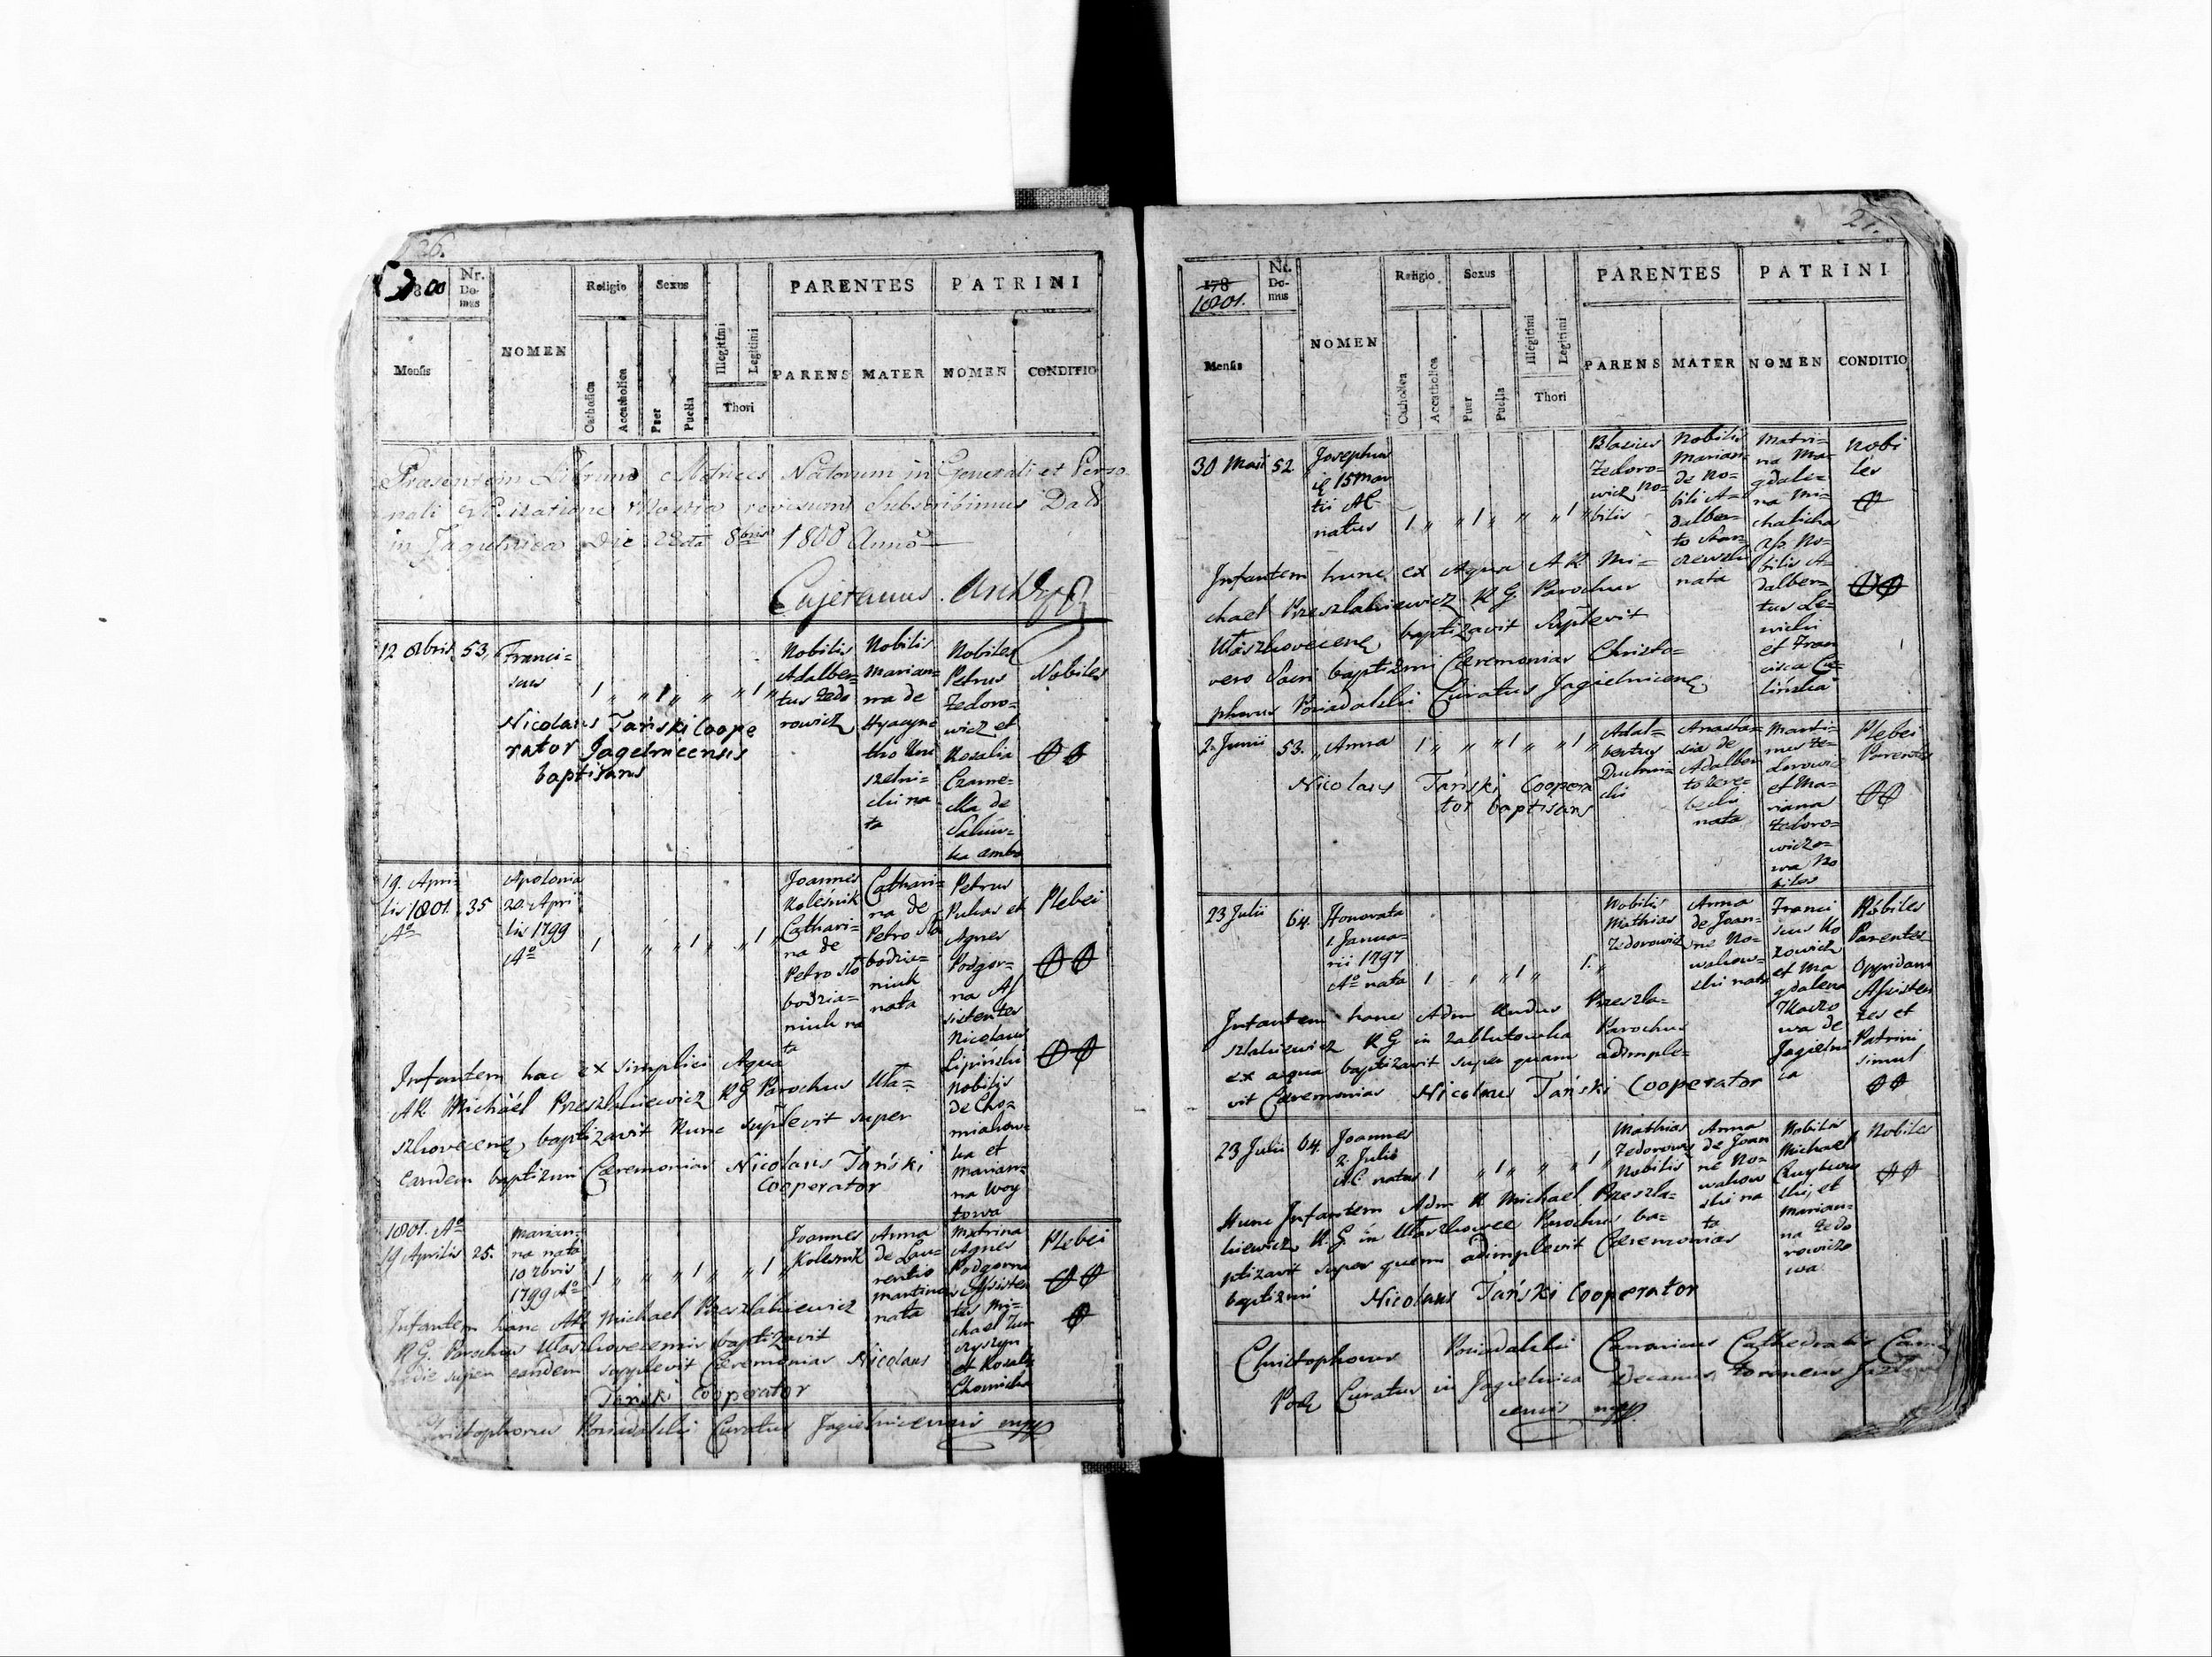 26.
1800
Nr. Domus
NOMEN
Religio
Sexus
Illegitimi
Legitimi
PARENTES
PATRINI
Mensis
Catholica
Accatholica
Puer
Puella
Thori
PARENS
MATER
NOMEN
CONDITIO
Præsentem Librum Metrices Natorum in Generali et Perso
nali Visitatione Nostra revisum Subscribimus Dat
in Jagielnica Die 28va 8bris 1800 Anno
Cajetanus
12 8bris 53,
Franci=
scus
1 „ „ 1 „ „ „ 1 „
Nicolaus Tański Coope
rator Jagelnicensis
baptisans
Nobilis
Adalber=
tus Zedo
rowicz
Nobilis
Marian=
na de
Hyacyn=
tho
nata
Nobiles
Petrus
Zedoro=
wicz et
Rosalia
de
ambo
Nobiles
19. Apri=
lis 1801.
Aº
35
Apolonia
20. Apri
lis 1799
Aº
1 „ „ 1 „ „ 1 „
Joannes
Kolesnik
Cathari=
na de
Petro Sło
bodzia=
niuk na
ta
Cathari=
na de
Petro Sło
bodzia=
niuk
nata
Petrus
Puhas et
Agnes
Podgor=
na As
sistentes
Nicolaus
Lipiński
Nobilis
de Cho=
miakow=
ka et
Marian=
na Woy
towa
Plebei
Infantem hac ex simplici Aqua
AR Michäel Przeszlakiewicz RG Parochus Uła=
szkovecens baptizavit Nunc suplevit super
eandem baptizmi Cæremonias Nicolaus Tański
Cooperator
1801. Aº
19 Aprilis 25.
Marian=
na nata
10 bris
1799 Aº
1 „ „ „ 1 „ „ 1 „
Joannes
Kolesnik
Anna
de Lau=
rentio
nata
Matrina
Agnes
Podgorna
Assisten
tes Mi=
chael
et Rosalia
Plebei
Infantem hanc AR Michael Przeszlakiewicz
R G. Parochus Ułaszkovecensis baptizavit
hodie super eandem supplevit Cæremonias Nicolaus
Tański Cooperator
Christophorus Poniadalski Curatus Jagielnicensis mpp
27.
178
1801.
Nr. Domus
NOMEN
Religio
Sexus
Illegitimi
Legitimi
PARENTES
PATRINI
Mensis
Catholica
Accatholica
Puer
Puella
Thori
PARENS
MATER
NOMEN
CONDITIO
30 Maii 52.
Josephus
15 Mar
tii AC
natus
1 „ „ 1 „ „ „ 1 „
Blasius
Zedoro=
wicz No=
bilis
Nobilis
Marian
de No=
bili A=
dalber=
to
nata
Matri=
na Ma=
gdale=
na Mi=
chalicha
As. No=
bilis A=
dalber=
tus Le=
wicki
et Fran
cisca
Nobi
les
Infantem hunc ex Aqua AR Mi=
chael Przeszlakiewicz R G. Parochus
Ułaszkovecens baptizavit Suplevit
vero Sacri baptizmi Cæremonias Christo=
phorus Poniadalski Curatus Jagielnicens
2. Junii 53.
Anna
1 „ „ „ 1 „ „ 1 „
Adal=
bertus
Duchni=
cki
Anasta=
sia de
Adalber
to
nata
Marti=
nus Ze=
dorowicz
et Ma=
riana
Zedoro=
wiczo=
wa No
biles
Plebei
Parentes
Nicolaus Tański Coopera
tor baptisans
23 Julii 64.
Honorata
1. Janua=
rii 1797
Aº nata
1 „ „ 1 „ 1. „
Nobilis
Mathias
Zedorowicz
Anna
de Joan=
ne No=
wakow=
ski nata
Franci
scus Ko
zowicz
et Ma
gdalena
Tkaczo
wa de
Jagielni
ca
Nobiles
Parentes
Oppidani
Assisten
tes et
Patrini
simul
Infantem hanc Adm Rndus Przeszla=
szlakiewicz R G in Zablutowka Parochus
ex aqua baptizavit super quam adimple=
vit Cæremonias Nicolaus Tański Cooperator
23 Julii 64.
Joannes
2. Julii
A.C. natus
1 „ 1 „ „ „ 1 „
Mathias
Zedorowicz
Nobilis
Anna
de Joan
ne No=
wakow
ski na
ta
Nobiles
Michael
et
Marian=
na Zedo
rowiczo
wa
Nobiles
Hunc Infantem Adm R Michael Przeszla=
kiewicz R. G. in Ułaszkowce Parochus ba=
ptizavit super quem adimplevit Cæremonias
baptizmi Nicolaus Tański Cooperator
Christophorus Poniadalski Canonicus Cathedralis
Curatus in Jagielnica Decanus
mpp